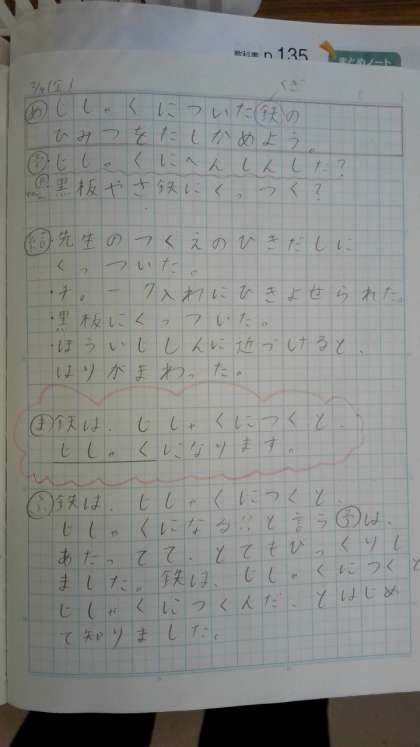 教科書 p.135 まとめノート
くぎ
め じしゃくについた鉄の
ひみつをたしかめよう。
予・じしゃくにへんしんした?
黒板やさ鉄にくっつく?
結・先生のつくえのひきだしに
くっついた。
・チョーク入れにひきよせられた。
・黒板にくっついた。
・ほういじしんに近づけると、
はりがまわった。
ま 鉄は、じしゃくにつくと、
じしゃくになります。
鉄は、じしゃくにつくと、
じしゃくになる!?と言う予は、
あたってて、とてもびっくりし
ました。鉄は、じしゃくにつくと
じしゃくにつくんだ、とはじめ
て知りました。